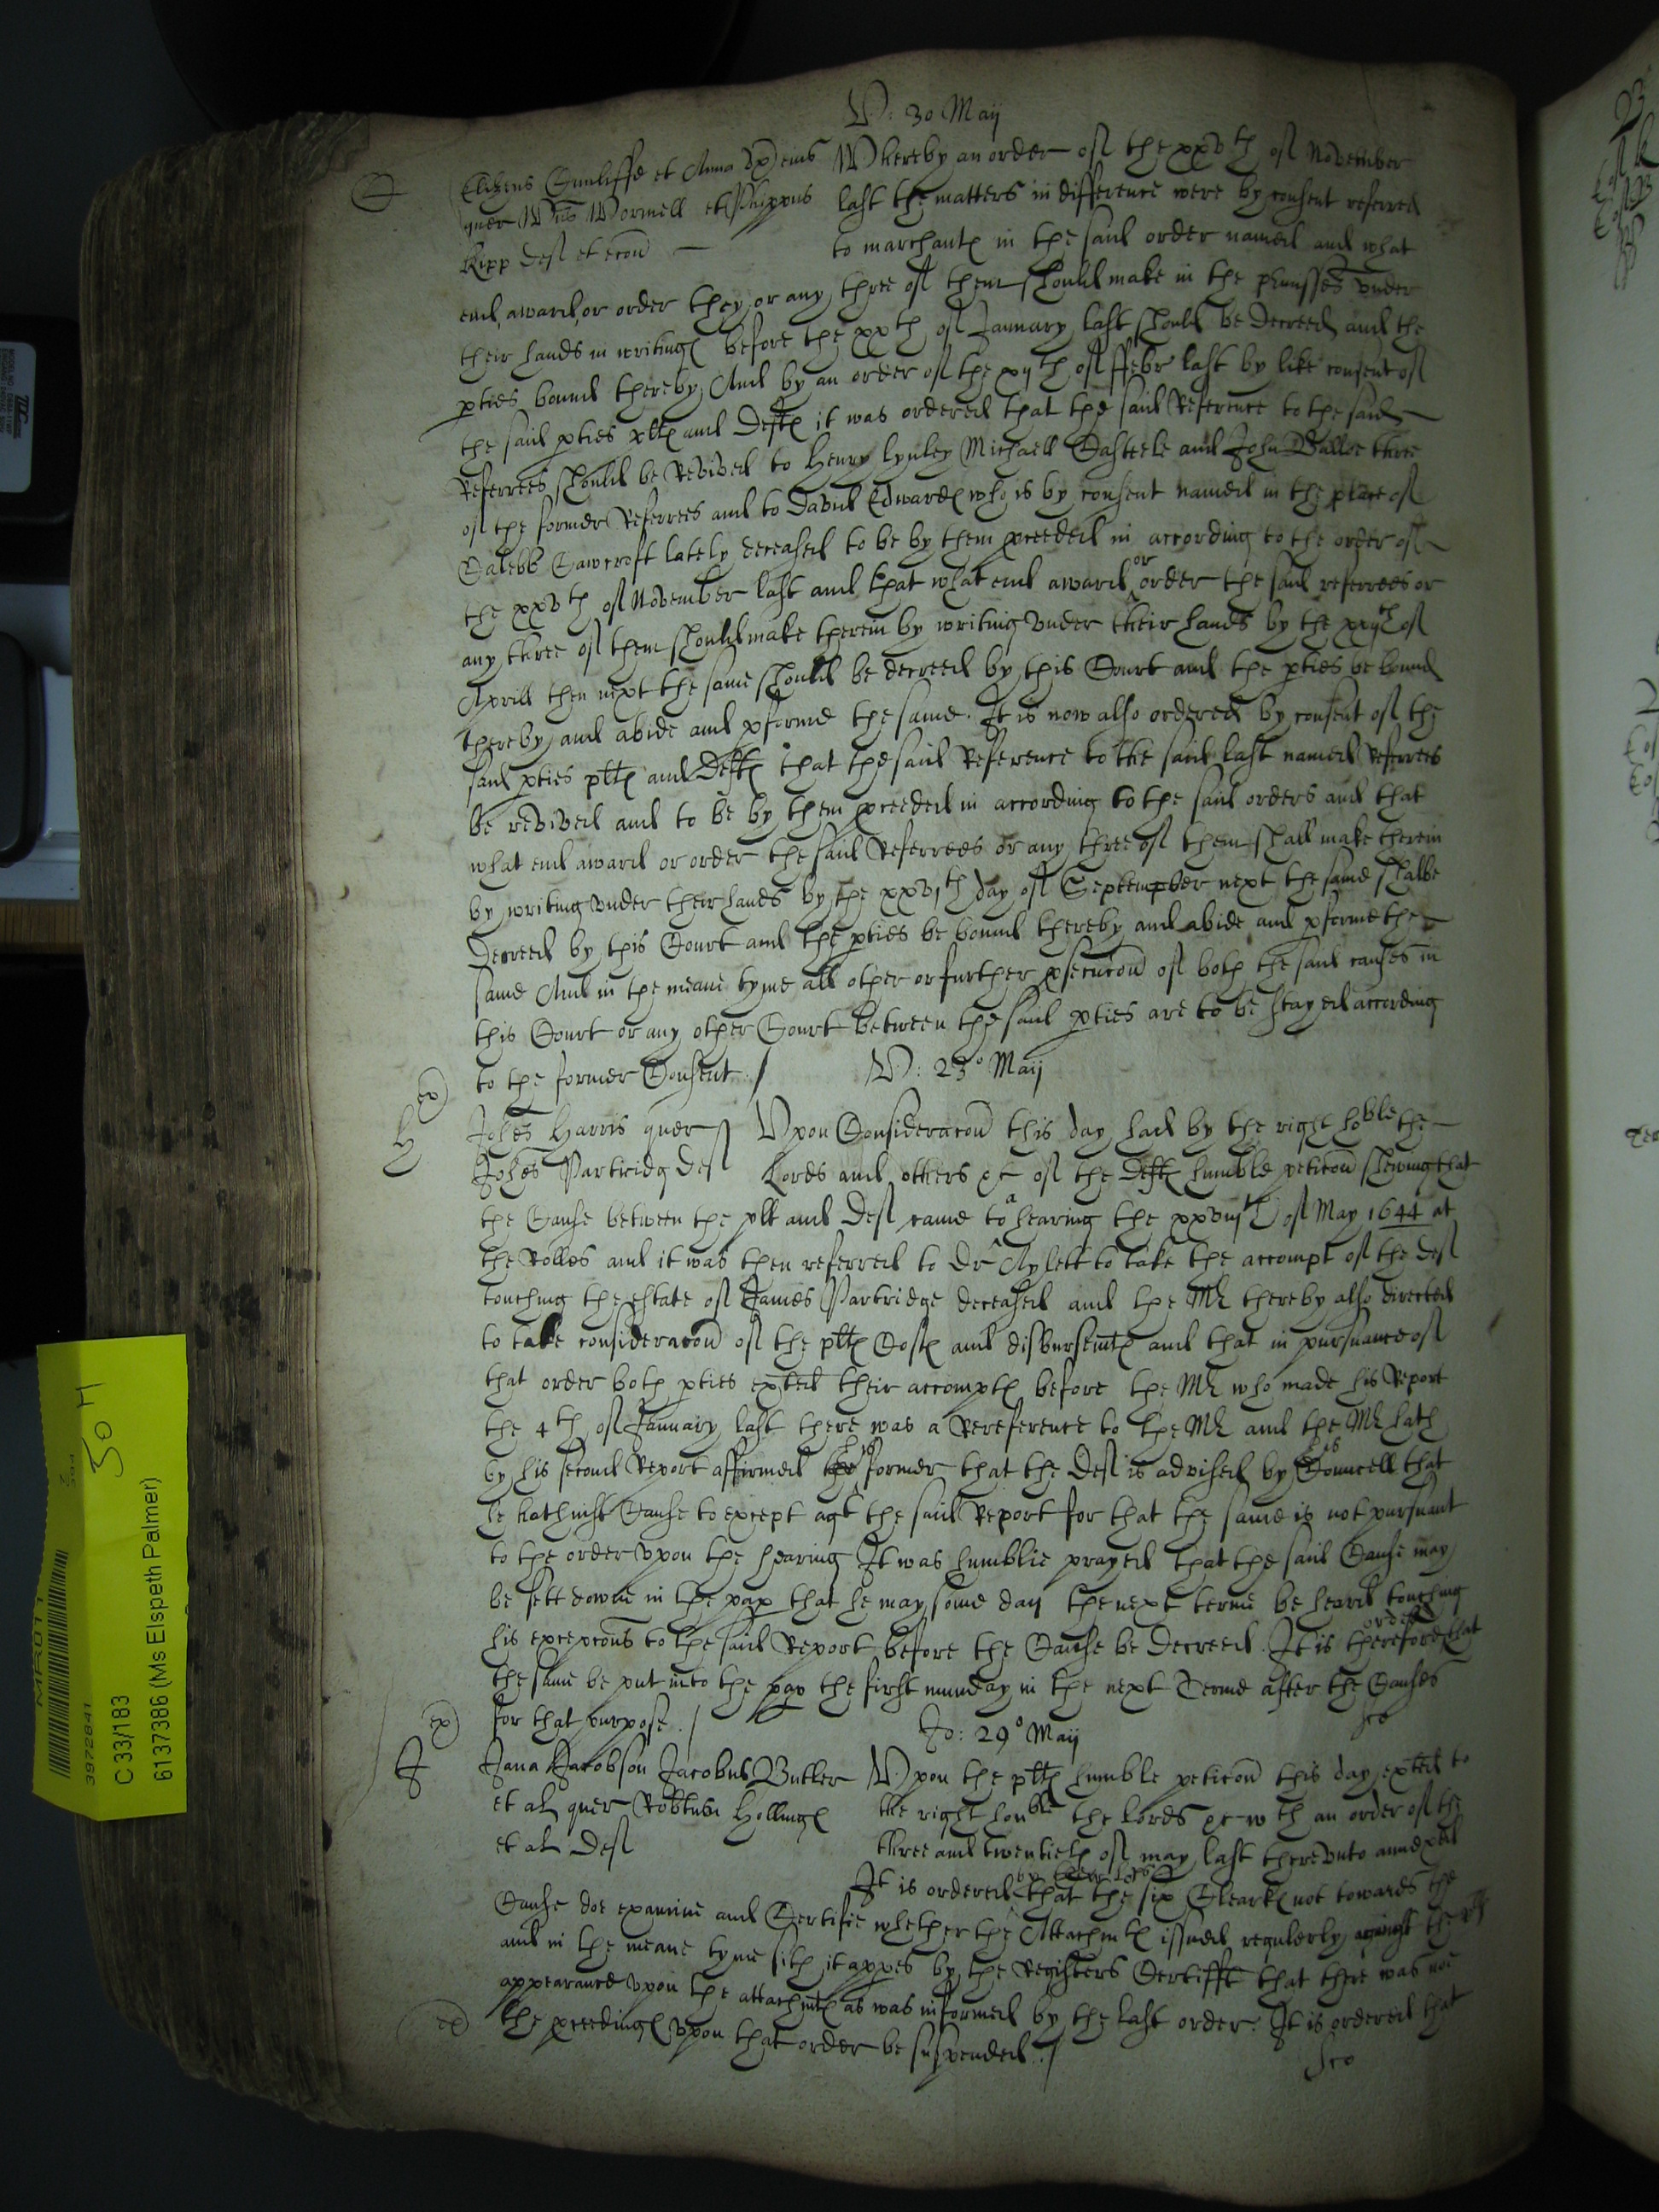 V: 30 Maij
C
Elizeus Cunliffe et Anna vx eius Whereby an order of the xxvth of November
quer Willus Wormell et Phippus last the matters in difference were by consent referred
Kipp def et econ to marchants in the said order named and what
end, award, or order they or any three of them should make in the premisses vnder
their hands in writing before the xxth of January last should be decreed and the
pties bound thereby, And by an order of the xijth of ffebr last by like consent of
the said pties plts and defts it was ordered that the said Reference to the said
Referrees should be Revived to Henry Lynley Michaell Casteele and John Balloe three
of the former Referrees and to David Edwards who is by consent named in the place of
Calebb Cawcroft lately deceased to be by them pceeded in according to the order of
the xxvth of November last and that what end award or order the said referrees or
any three of them should make therein by writing vnder their hands by the xxijth of
Aprill then next the same should be decreed by this Court and the pties be bound
thereby and abide and pforme the same. It is now also ordered by consent of the
said pties plts and Defts that the said Reference to the said last named Referrees
be revived and to be by them pceeded in according to the said orders and that
what end award or order the said Referrees or any three of them shall make therein
by writing vnder their hands by the xxvjth day of September next the same shalbe
decreed by this Court and the pties be bound thereby and abide and pforme the
same And in the meane tyme all other or further psecucon of both the said causes in
this Court or any other Court between the said pties are to be stayed according
to the former Consent ./
V: 23o Maij
ex
H
Johes Harris quer Vpon Consideracon this day had by the right hoble the
Johes Partridg def Lords and others &c of the defts humble peticon shewing that
the Cause between the plt and def came to a hearing the xxviijth of May 1644 at
the Rolles and it was then referred to Dr Aylett to take the accompt of the def
touching the estate of James Partridge deceased and the Mr thereby also directed
to take consideracon of the plts Costs and disbursemts and that in pursuance of
that order both pties exhted their accompts before the Mr who made his Report
the 4th of January last there was a Rereference to the Mr and the Mr hath
by his second Report affirmed the his former that the def is advised by his Councell that
he hath just Cause to except agt the said Report for that the same is not pursuant
to the order vpon the hearing It was humblie prayed that the said Cause may
be sett downe in the pap that he may some day the next terme be heard touching
his excepcons to the said Report before the Cause be decreed. It is therefore orded that
the same be put into the pap the first munday in the next Terme after the Causes
for that purpose ./
Jo: 29o Maij
ex
J
Jana Jacobson Jacobus Butler Vpon the plts humble peticon this day exhted to
et al quer Robtus Hollings the right honble the Lords &c wth an order of the
et al def three and twentieth of may last therevnto annexed
It is ordered by their Lopps that the six Clearks not towards the
Cause doe examine and Certifie whether the Attachmts issued regulerly against the plts
and in the meane tyme sith it appes by the Registers Certifft that there was noe
appearance vpon the attachmts as was informed by the last order. It is ordered that
the pceedings vpon that order be suspended ./
ex
3972841
C 33/183
6137386 (Ms Elspeth Palmer)